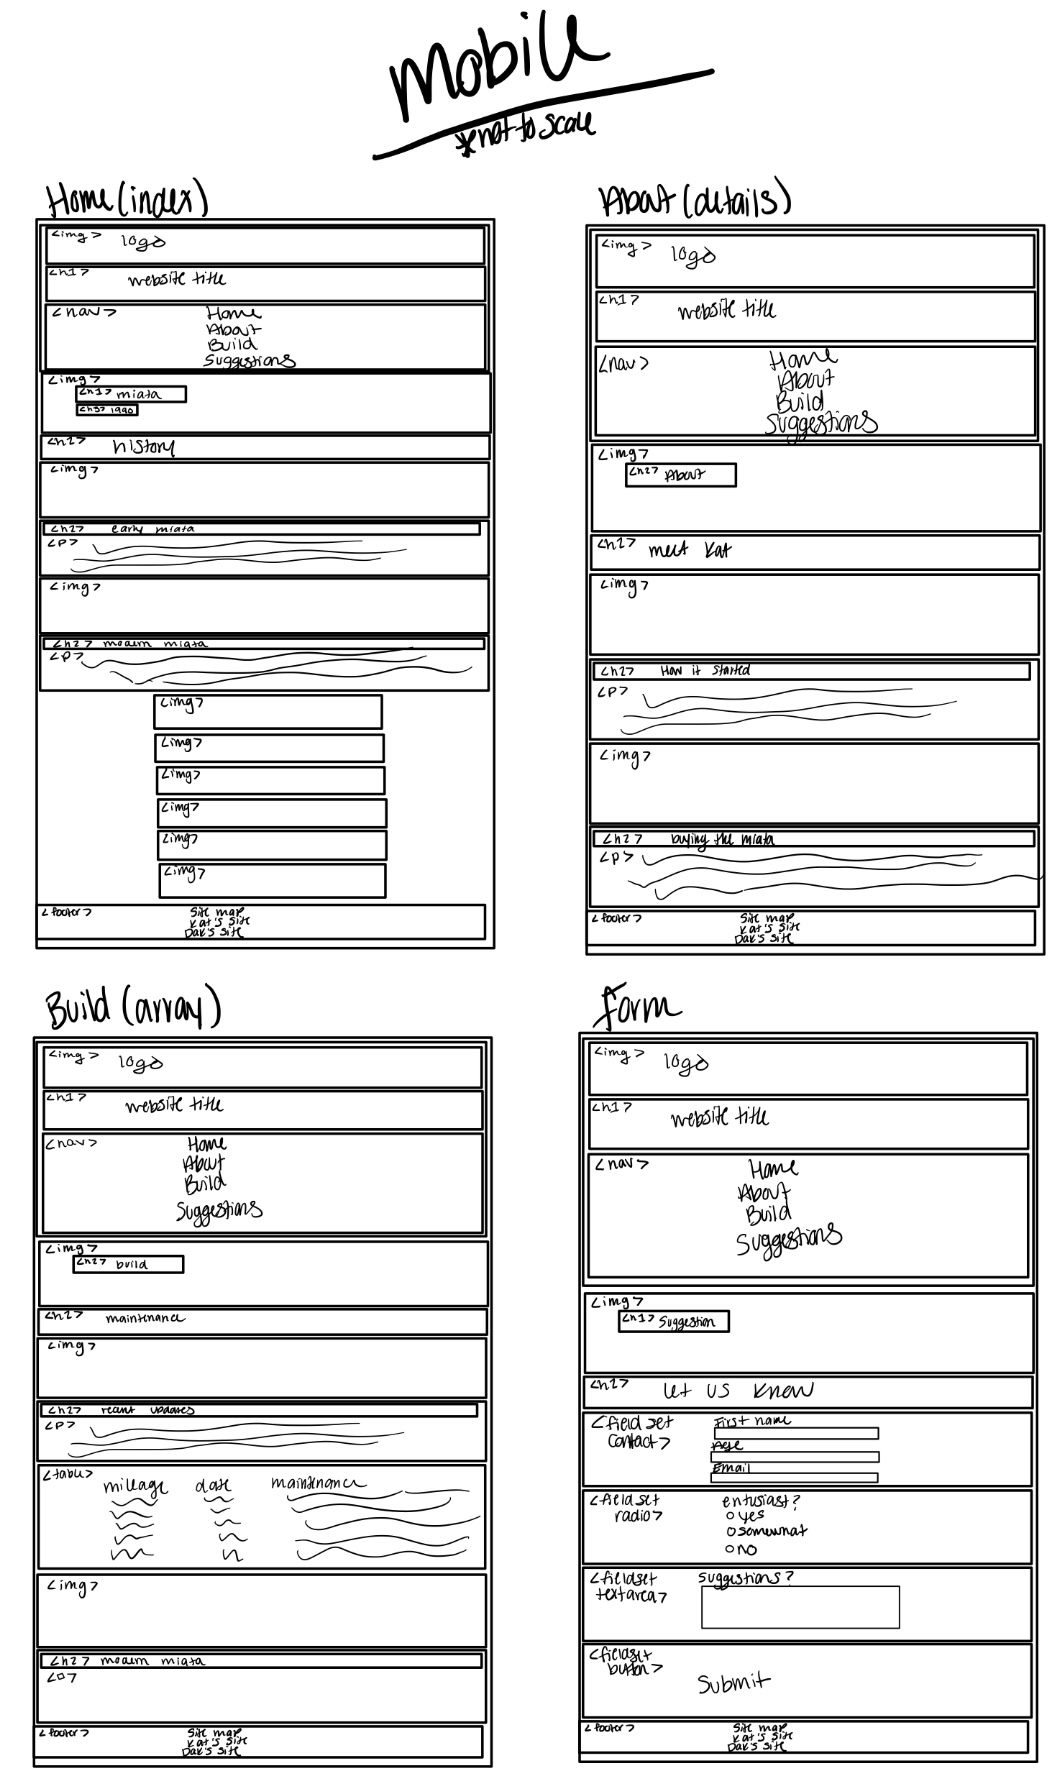 mobile
*not to scale
Home (index)
<img> logo
<h1> website title
<nav> Home
About
Build
Suggestions
<img>
<h1> miata
<h3> 1990
<h2> history
<img>
<h2> early miata
<p>
<img>
<h2> modern miata
<p>
<img>
<img>
<img>
<img>
<img>
<img>
<footer> Site map
Kat's Site
Dak's Site
About (details)
<img> logo
<h1> website title
<nav> Home
About
Build
Suggestions
<img>
<h2> About
<h2> meet Kat
<img>
<h2> How it started
<p>
<img>
<h2> buying the miata
<p>
<footer> Site map
Kat's Site
Dak's Site
Build (array)
<img> logo
<h1> website title
<nav> Home
About
Build
Suggestions
<img>
<h2> build
<h2> maintenance
<img>
<h2> recent updates
<p>
<table> mileage date maintenance
<img>
<h2> modern miata
<p>
<footer> Site map
Kat's Site
Dak's Site
Form
<img> logo
<h1> website title
<nav> Home
About
Build
Suggestions
<img>
<h1> Suggestion
<h2> Let us know
<field set First name
contact> Age
Email
<field set entusiast?
radio> yes
somewhat
no
<fieldset suggestions?
textarea>
<fieldset
button> Submit
<footer> Site map
Kat's Site
Dak's Site